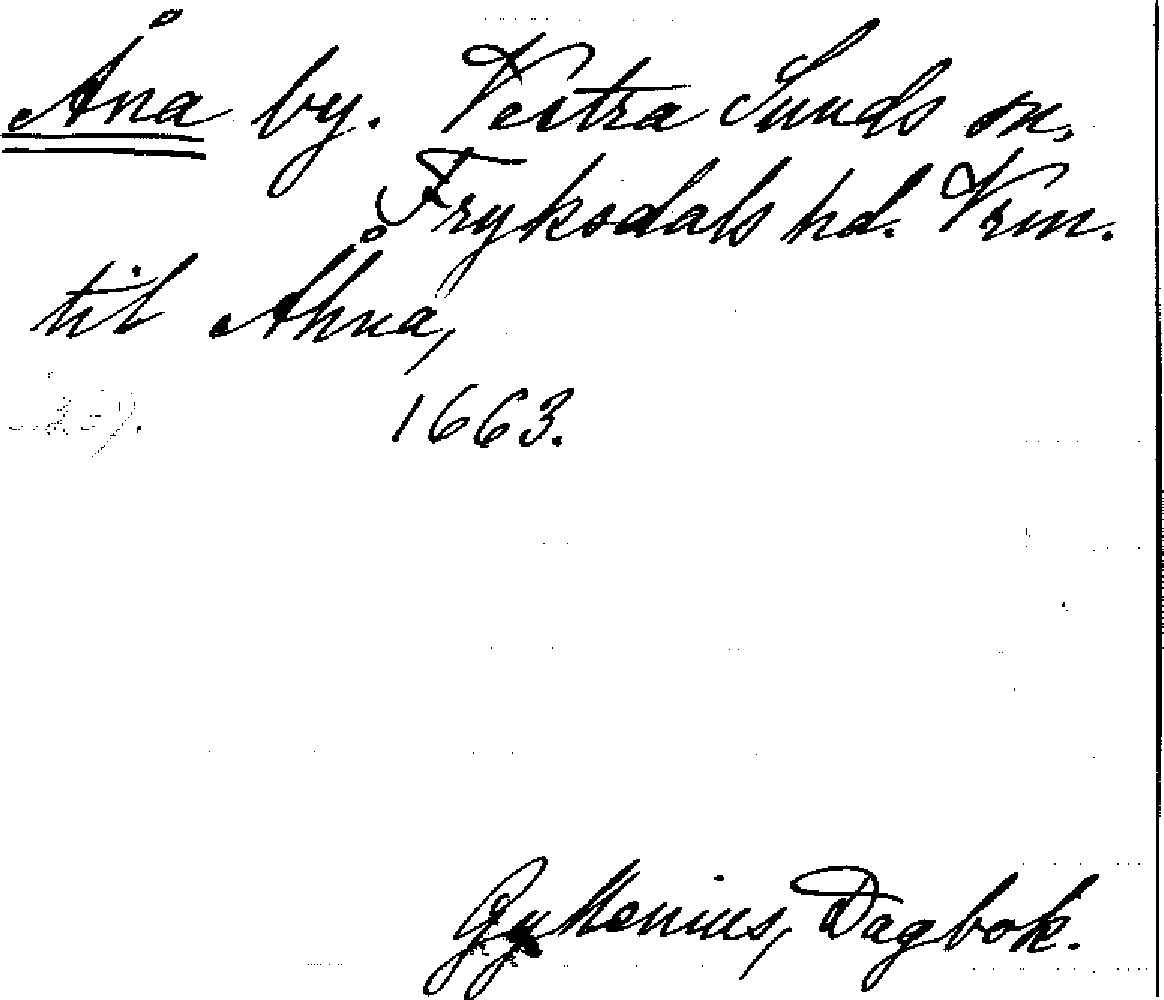 Åna by. Vestra Sunds sn,
Fryksdals hd. Vrm.
till Åhna,
1663.
Gyllenius, Dagbok.